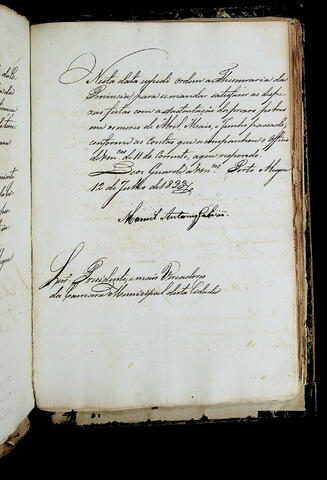 Nesta data expedi ordem a Thesouraria da
Provincia, para se mandar satisfazer as despe-
zas feitas com a sustentação dos prezos pobres
em os mezes de Abril, Maio, e Junho passado,
conforme as contas que acompanharão o Officio
de Vm.ces de 11 do Corrente, a que respondo.
Deos Guarde a Vm.ces Porto Alegre
12 de Julho de
Manoel Antonio Galvão
Snr.s Presidente, e mais Vereadores
da Camara Municipal desta Cidade